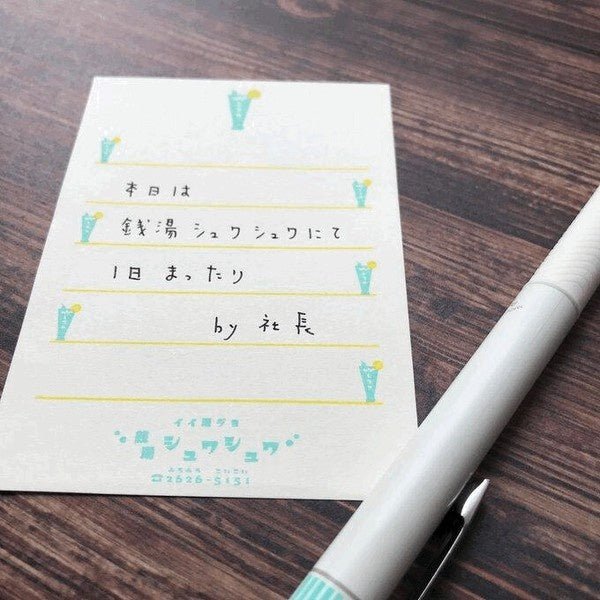 本日は
銭湯 シュワシュワにて
1日 まったり
by 社長
イイ湯ダヨ
銭湯 シュワシュワ
☎2626-5151